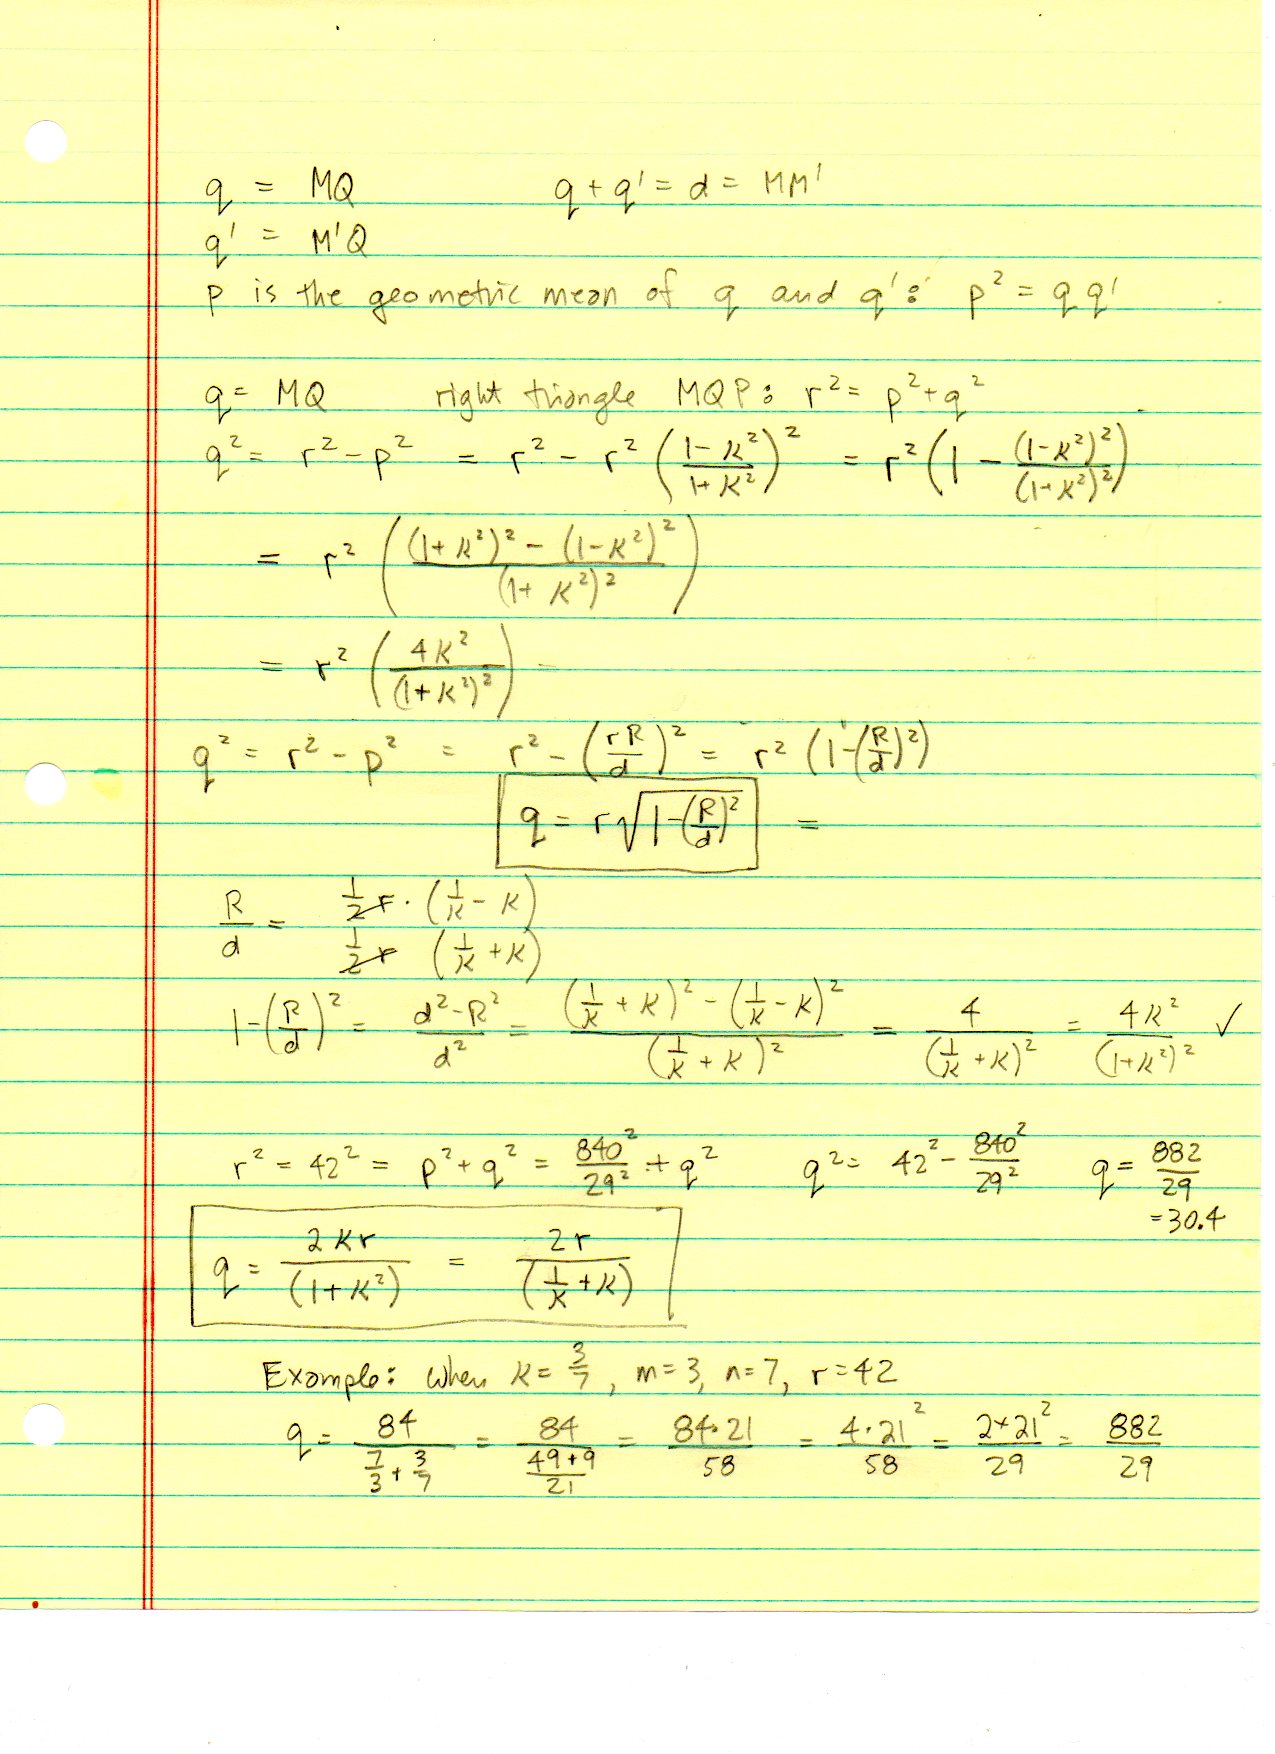 q = MQ q + q' = d = MM'
q' = M'Q
p is the geometric mean of q and q': p² = q q'
q = MQ right triangle MQP: r² = p² + q²
q² = r² - p² = r² - r² ((1-k²)/(1+k²))² = r² (1 - (1-k²)²/(1+k²)²)
= r² (((1+k²)² - (1-k²)²)/(1+k²)²)
= r² (4k²/(1+k²)²) =
q² = r² - p² = r² - (rR/d)² = r² (1-(R/d)²)
q = r√(1-(R/d)²) =
R/d = (1/2 r · (1/k - k))/(1/2 r (1/k + k))
1-(R/d)² = (d²-R²)/d² = ((1/k + k)² - (1/k - k)²)/(1/k + k)² = 4/(1/k + k)² = 4k²/(1+k²)² ✓
r² = 42² = p² + q² = 840²/29² + q² q² = 42² - 840²/29² q = 882/29
= 30.4
q = 2kr/(1+k²) = 2r/(1/k + k)
Example: when k = 3/7, m = 3, n = 7, r = 42
q = 84/(7/3 + 3/7) = 84/((49+9)/21) = 84·21/58 = 4·21²/58 = 2×21²/29 = 882/29